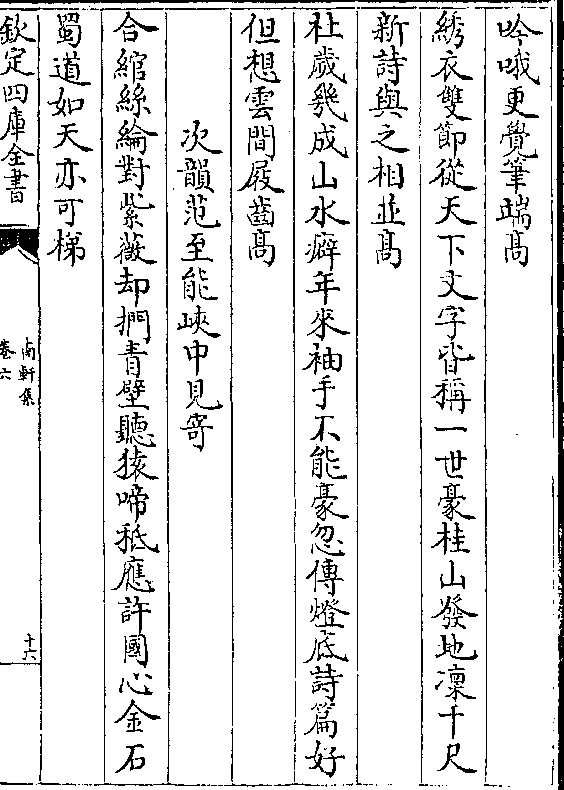 吟哦更覺筆端髙
綉衣雙節從天下文字皆稱一世豪桂山發地凜千尺
新詩與之相並髙
社歲幾成山水癖年來袖手不能豪忽傳燈底詩篇好
但想雲間屐齒髙
次韻范至能峽中見寄
合綰絲綸對紫薇却捫青壁聽猿啼秪應許國心金石
蜀道如天亦可梯
欽定四庫全書
南軒集
卷六
十六